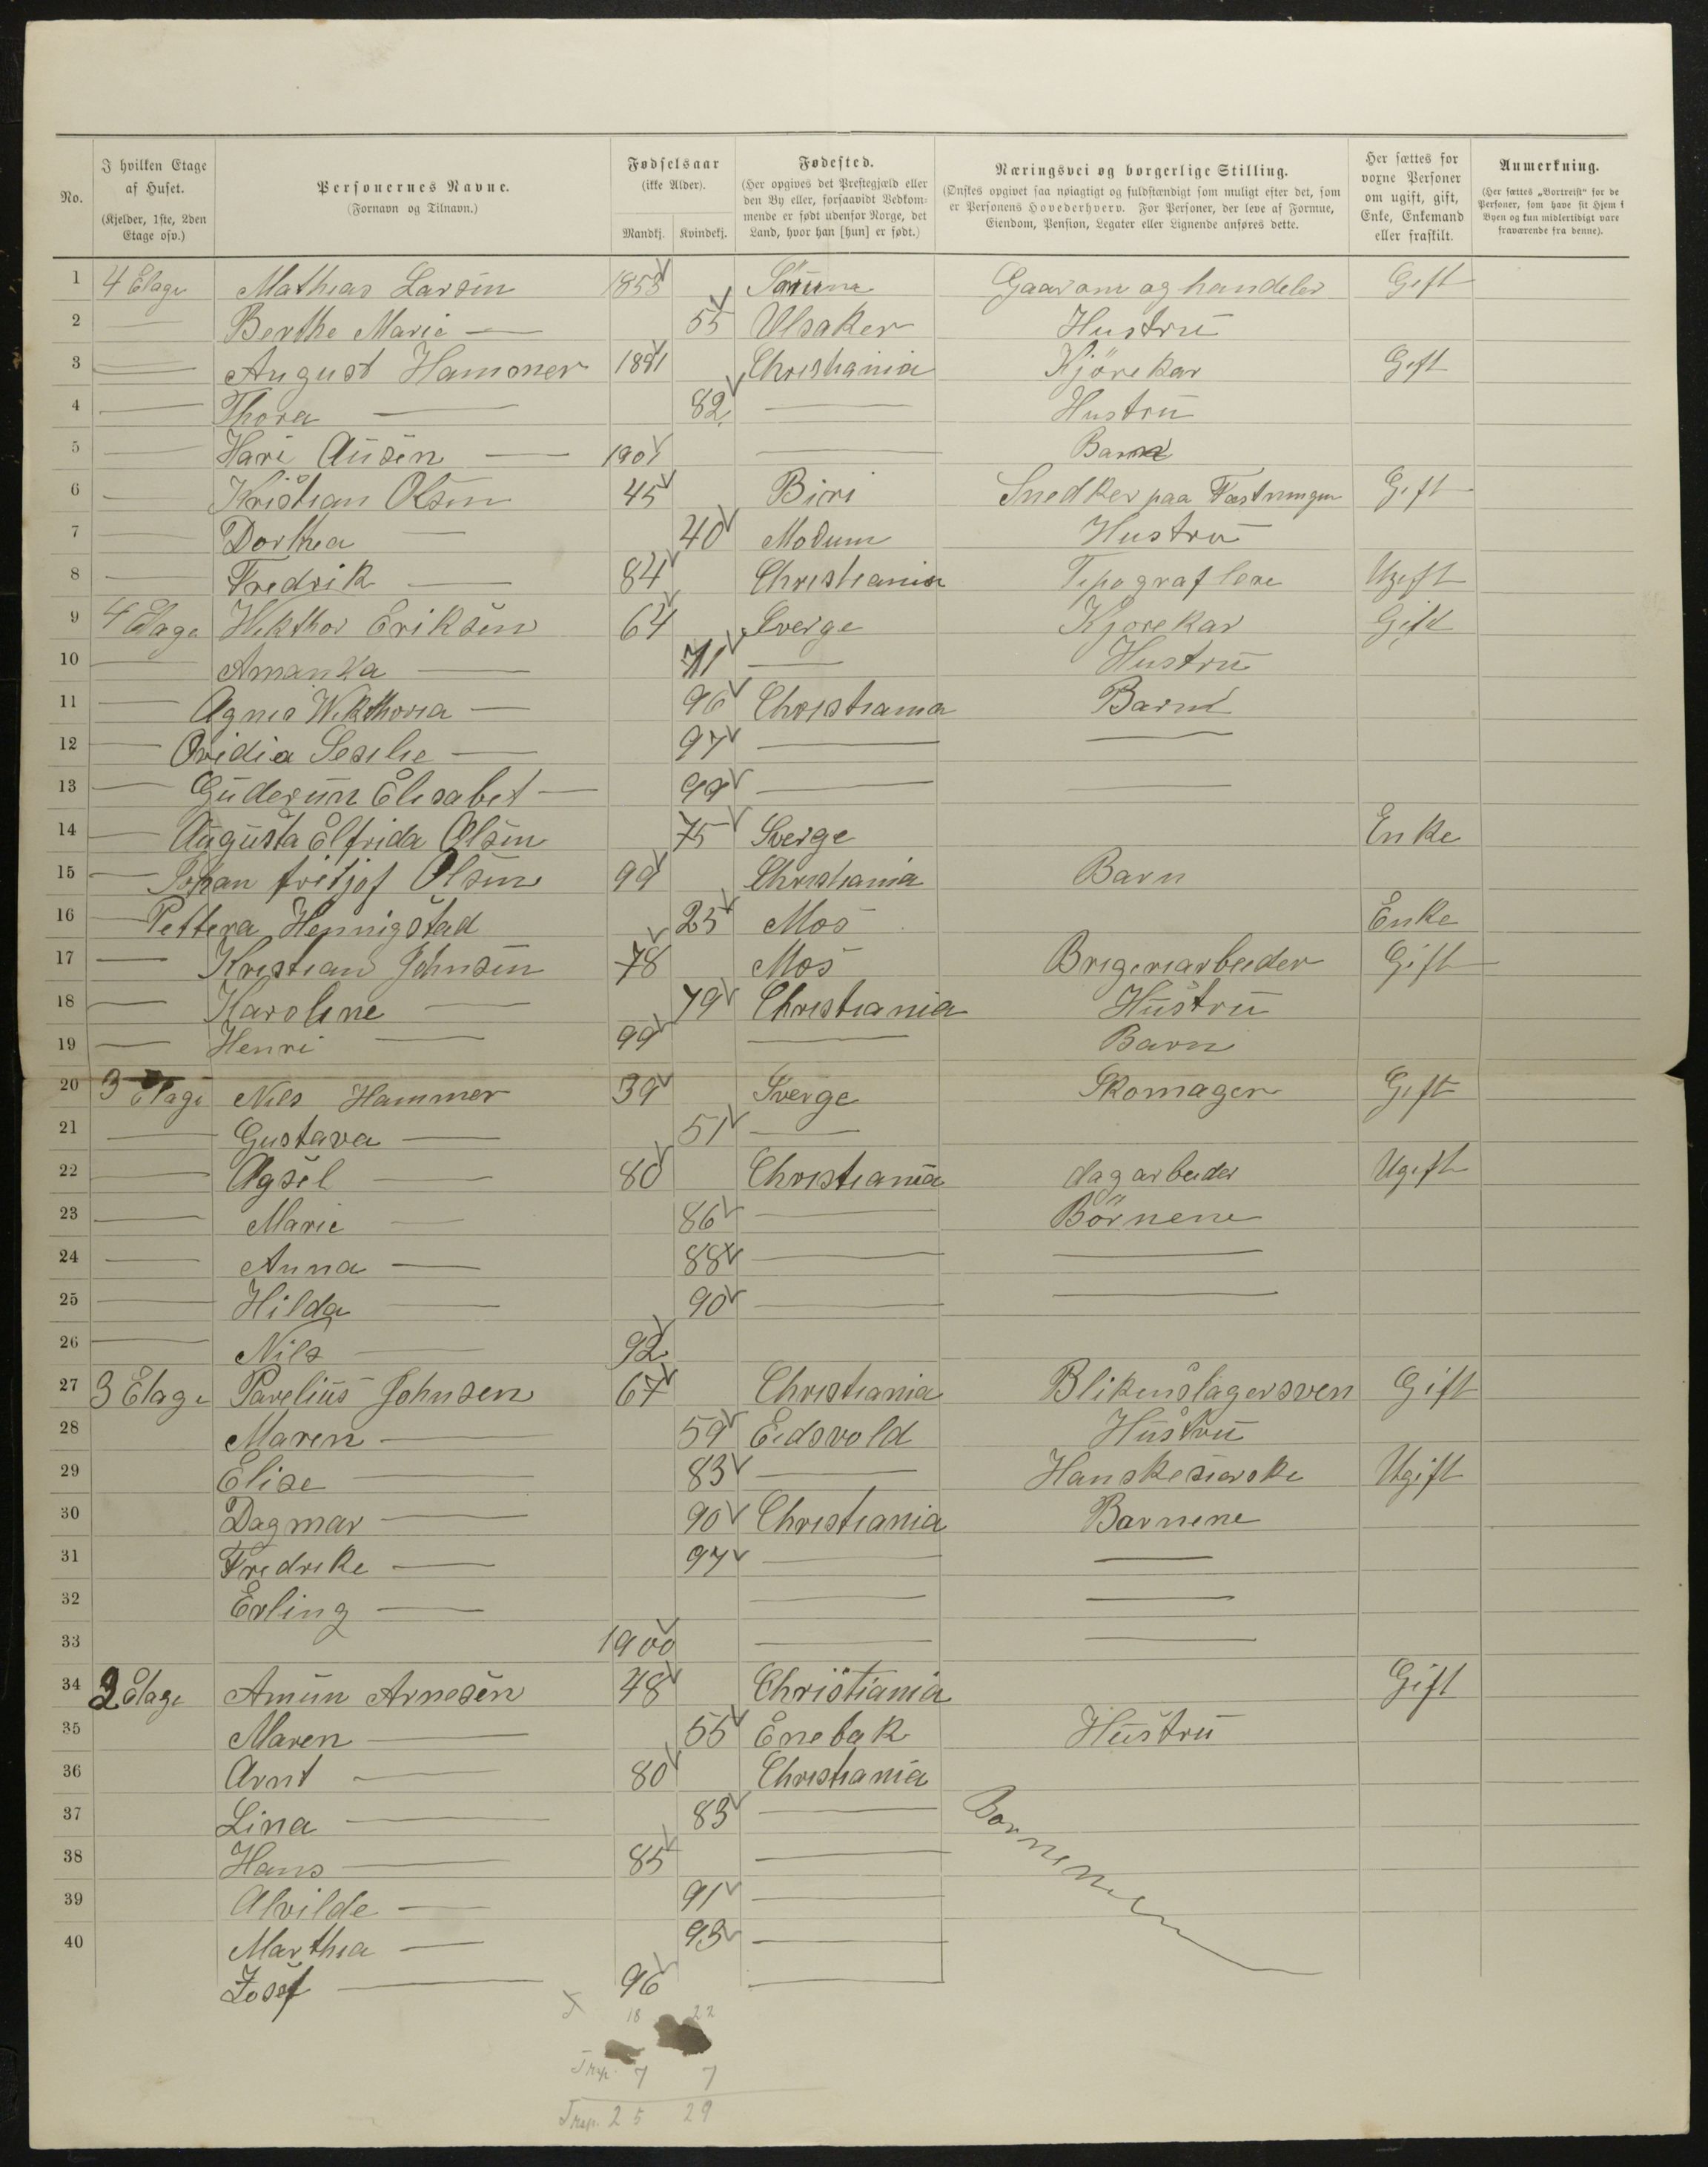 No.
I hvilken Etage af Huset.
(Kjelder, 1ste, 2den Etage osv.)
Personernes Navne.
(Fornavn og Tilnavn.)
Fødselsaar
(ikke Alder).
Mandkj. Kvindekj.
Fødested.
(Her opgives det Prestegjæld eller den By eller, forsaavidt Vedkommende er født udenfor Norge, det Land, hvor han [hun] er født.)
Næringsvei og borgerlige Stilling.
(Ønskes opgivet saa nøiagtigt og fuldstændigt som muligt efter det, som er Personens Hovederhverv. For Personer, der leve af Formue, Eiendom, Pension, Legater eller Lignende anføres dette.
Her sættes for voxne Personer om ugift, gift, Enke, Enkemand eller fraskilt.
Anmerkning.
(Her sættes „Bortreist“ for de Personer, som have sit Hjem i Byen og kun midlertidigt vare fraværende fra denne).
1 4 Etage Mathias Larsen 1853 Sørum handeler Gift
2 — Berthe Marie — 55 Ulsaker Hustru
3 — August Hammer 1881 Christiania Kjørekar Gift
4 — Thora — 82 — Hustru
5 — Hari Ausen — 1901 — Barn
6 — Kristian Olsen 45 Biri Snedker paa Fæstningen Gift
7 — Dorthea — 40 Modum Hustru
8 — Fredrik — 84 Christiania Tepograf lære Ugift
9 4 Etage Wikthor Eriksen 64 Sverge Kjørekar Gift
10 — Amanda — 71 — Hustru
11 — Agnes Wikthoria — 96 Christiania Barn
12 — Ovidia Seselie — 97 — —
13 — Guderun Elesabet — 99 — —
14 — Augusta Elfrida Olsen 75 Sverge Enke
15 — Johan fritjof Olsen 99 Christiania Barn
16 — Pettera Hennigstad 25 Mos Enke
17 — Kristian Johnsen 78 Mos Brigeriarbeider Gift
18 — Karoline — 79 Christiania Hustru
19 — Henri — 99 — Barn
20 3 Etage Nils Hammer 39 Sverge Skomager Gift
21 — Gustava — 51 —
22 — Agsel — 80 Christiania dagarbeider Ugift
23 — Marie — 86 — Börnene
24 — Anna — 88 — —
25 — Hilda — 90 — —
26 — Nils — 92
27 3 Etage Pavelius Johnsen 67 Christiania Blikenslagersven Gift
28 Maren — 59 Eidsvold Hustru
29 Elise — 83 — Hanskesierske Ugift
30 Dagmar — 90 Christiania Barnene
31 Fredrike — 97 — —
32 Erling — — —
33 1900 — —
34 2 Etage Amun Arnesen 48 Christiania Gift
35 Maren — 55 Enebak Hustru
36 Arnt — 80 Christiania
37 Lina — 83 — Barnene
38 Hans — 85 —
39 Alvilde — 91 —
40 Marthea — 93 —
Josef — 96 —
18 22
Trsp. 7 7
Trsp. 25 29